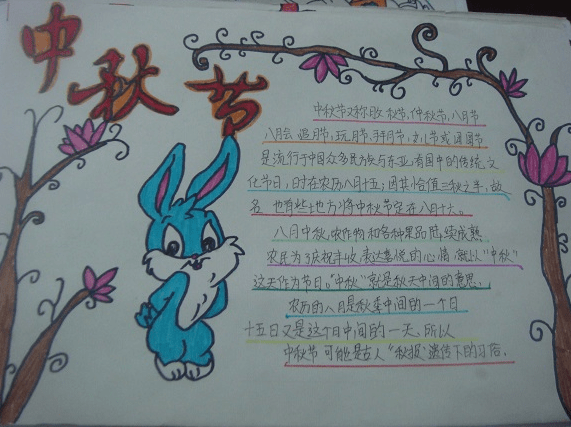 中秋节
中秋节又称月夕、秋节、仲秋节、八月节
八月会、追月节、玩月节、拜月节、女儿节或团圆节
是流行于中国众多民族与东亚诸国中的传统文
化节日，时在农历八月十五；因其恰值三秋之半，故
名，也有些地方将中秋节定在八月十六。
八月中秋，农作物和各种果品陆续成熟
农民为了庆祝丰收，表达喜悦的心情，就以“中秋”
这天作为节日。“中秋”就是秋天中间的意思，
农历的八月是秋季中间的一个月
十五日又是这个月中间的一天，所以
中秋节可能是古人“秋报”遗传下的习俗。